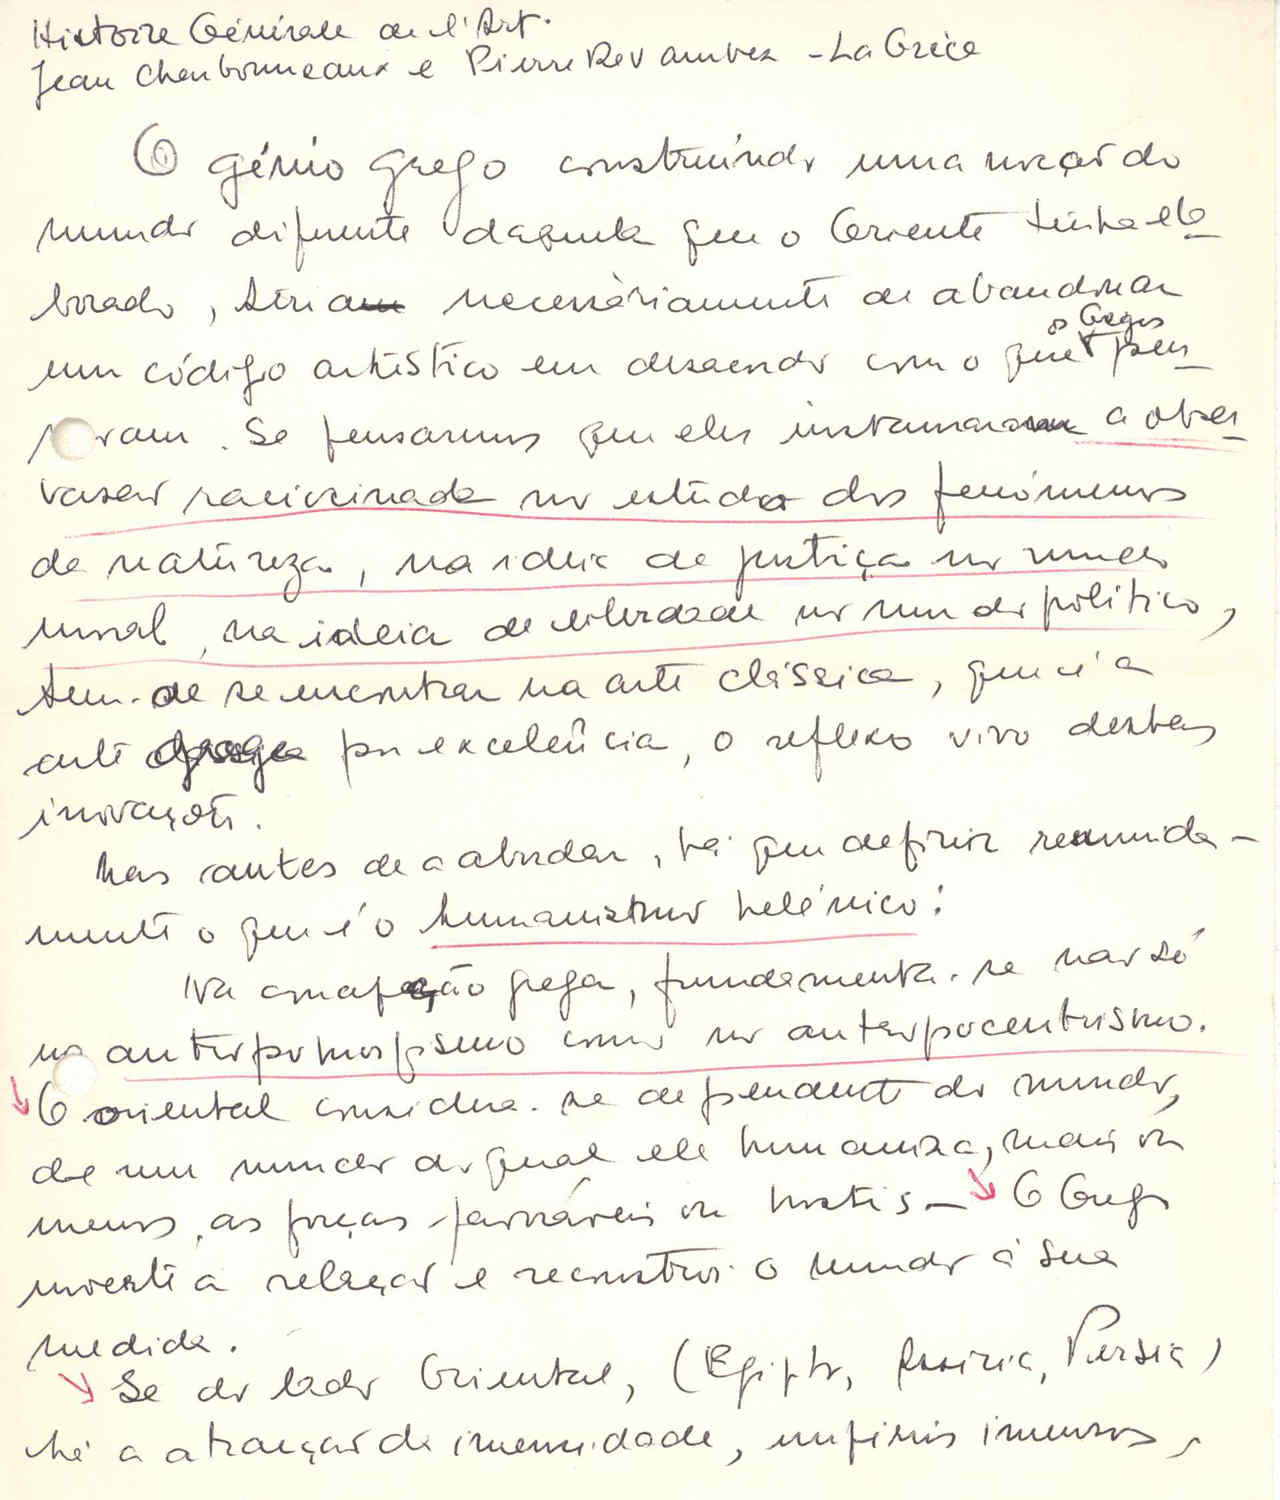 Histoire Générale de l'Art.
Jean Charbonneaux e Pierre Devambez - La Grèce
O génio grego construíndo uma noção do
mundo diferente daquela que o Oriente tinha ela-
borado, teria necessàriamente de abandonar
um código artístico em desacordo com o que os Gregos pen-
saram. Se pensarmos que eles instauraram a obser-
vação raciocinada no estudo dos fenómenos
da natureza, na ideia de justiça no mundo
moral, na ideia de liberdade no mundo político,
tem-de se encontrar na arte clássica, que é a
arte grega por excelência, o reflexo vivo destas
inovações.
Mas antes de a abordar, há que definir resumida-
mente o que é o humanismo helénico:
Na concepção grega, fundamenta-se não só
no antropomorfismo como no antropocentrismo.
O oriental considera-se dependente do mundo,
de um mundo do qual ele humaniza, mais ou
menos, as forças favoráveis ou hostis - O Grego
inverte a relação e reconstroi o mundo à sua
medida.
Se do lado Oriental, (Egipto, Assíria, Pérsia)
há a atracção da imensidade, impérios imensos,